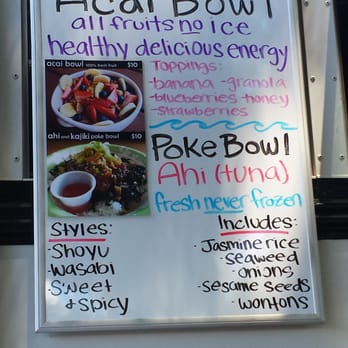 Acai Bowl
all fruits no ice
healthy delicious energy
acai bowl 100% fresh fruit $10
Toppings:
-banana -granola
-blueberries -honey
-strawberries
ahi and kajiki poke bowl $10
Poke Bowl
Ahi (tuna)
fresh never frozen
Styles:
-Shoyu
-Wasabi
-Sweet
& Spicy
Includes:
-Jasmine rice
-seaweed
-onions
-sesame seeds
-wontons